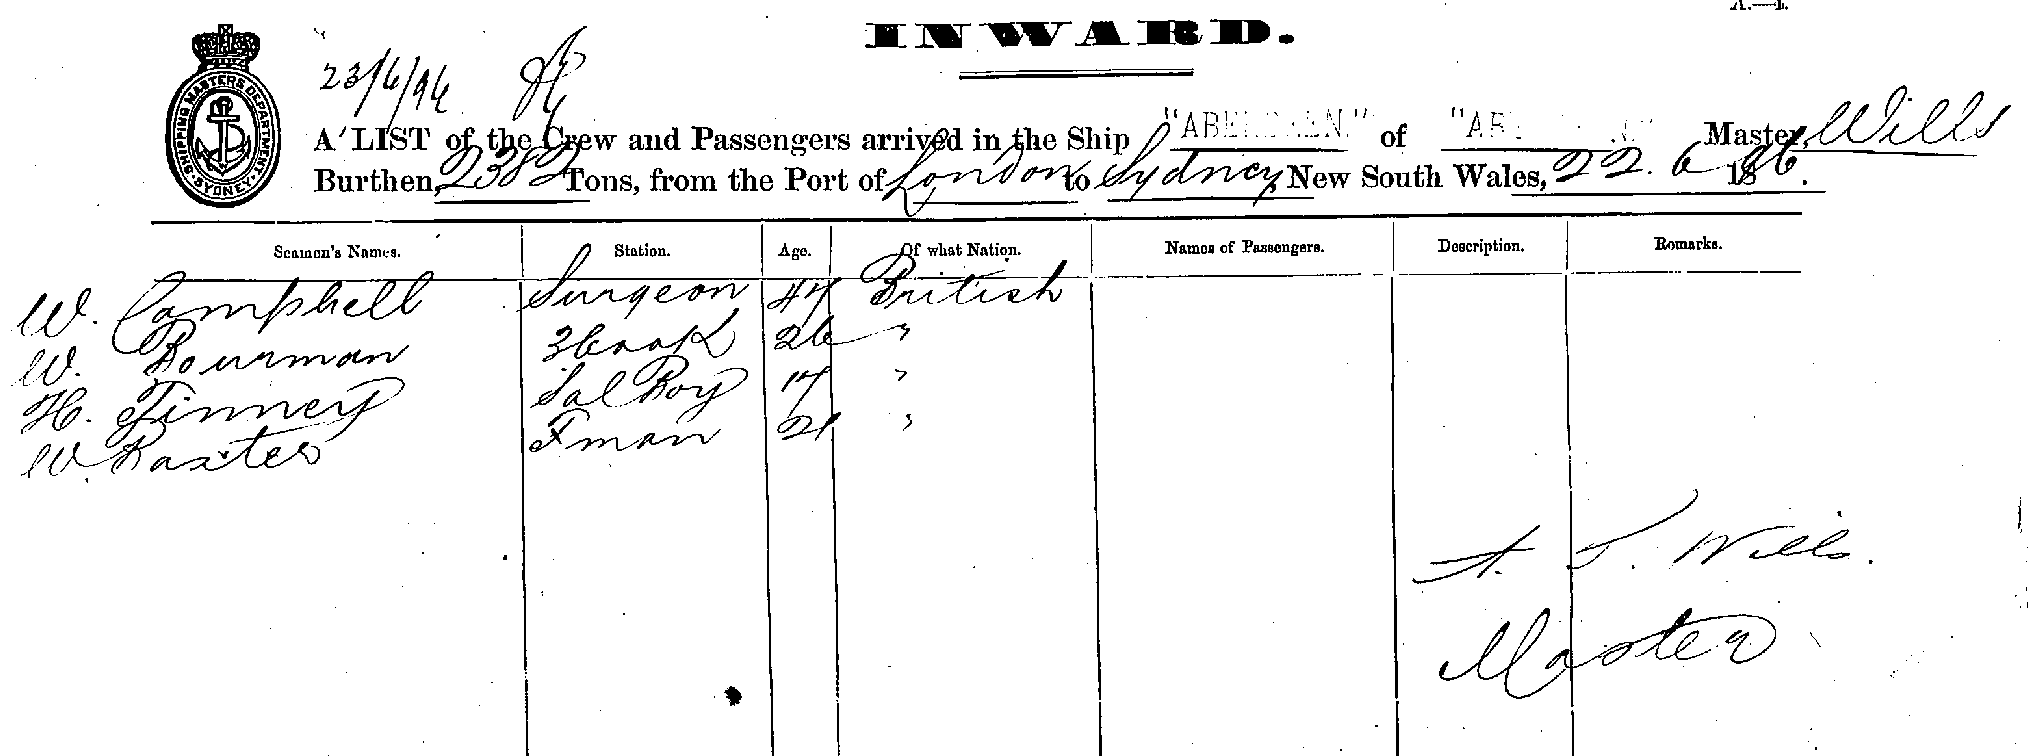 A.—1.
INWARD.
SHIPPING MASTERS DEPARTMENT SYDNEY
23/6/96
A LIST of the Crew and Passengers arrived in the Ship "ABERDEEN." of Master, Wills
Burthen, 2382 Tons, from the Port of London to Sydney, New South Wales, 22. 6 1896.
Seamen's Names. Station. Age. Of what Nation. Names of Passengers. Description. Remarks.
W. Campbell Surgeon 47 British
W. Bourman 3 Cook 26 "
H. Finney Sal Boy 17 "
W. Baxter Fman 21 "
A. T. Wills.
Master